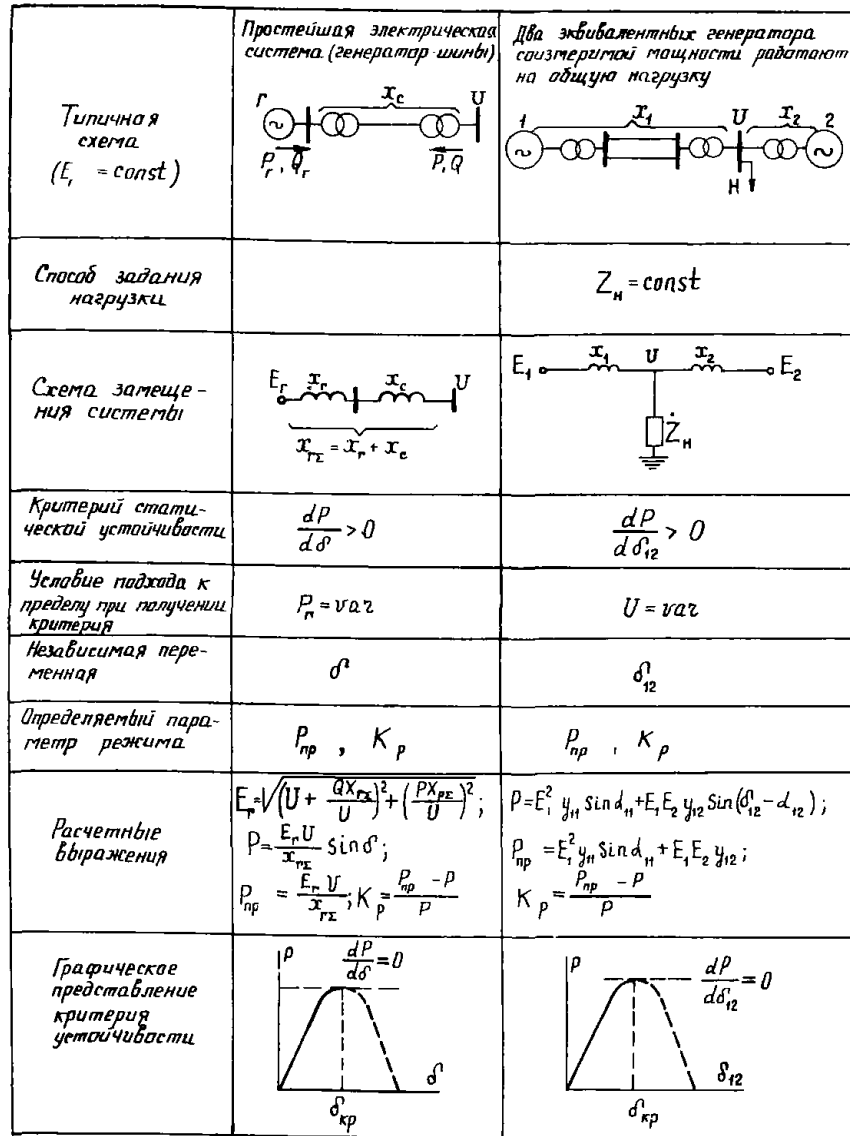 Простейшая электрическая
система (генератор-шины)
Два эквивалентных генератора
соизмеримой мощности работают
на общую нагрузку
Типичная
схема
(E, = const)
Г
x_c
U
P_г, Q_г
P, Q
1
x_1
U
x_2
2
H
Способ задания
нагрузки
Z_н = const
Схема замеще-
ния системы
E_г
x_г
x_c
U
x_гΣ = x_г + x_c
E_1
x_1
U
x_2
E_2
Ż_н
Критерий стати-
ческой устойчивости
dP/dδ > 0
dP/dδ_12 > 0
Условие подхода к
пределу при получении
критерия
P_г = var
U = var
Независимая пере-
менная
δ
δ_12
Определяемый пара-
метр режима
P_пр , K_р
P_пр , K_р
Расчетные
выражения
E_г = √((U + QX_гΣ/U)² + (PX_рΣ/U)²) ;
P = E_г U/x_гΣ sin δ ;
P_пр = E_г U/x_гΣ ; K_р = P_пр - P/P
P = E_1² y_11 sin α_11 + E_1 E_2 y_12 Sin(δ_12 - α_12) ;
P_пр = E_1² y_11 Sin α_11 + E_1 E_2 y_12 ;
K_р = P_пр - P/P
Графическое
представление
критерия
устойчивости
P
dP/dδ = 0
δ
δ_кр
P
dP/dδ_12 = 0
δ_12
δ_кр